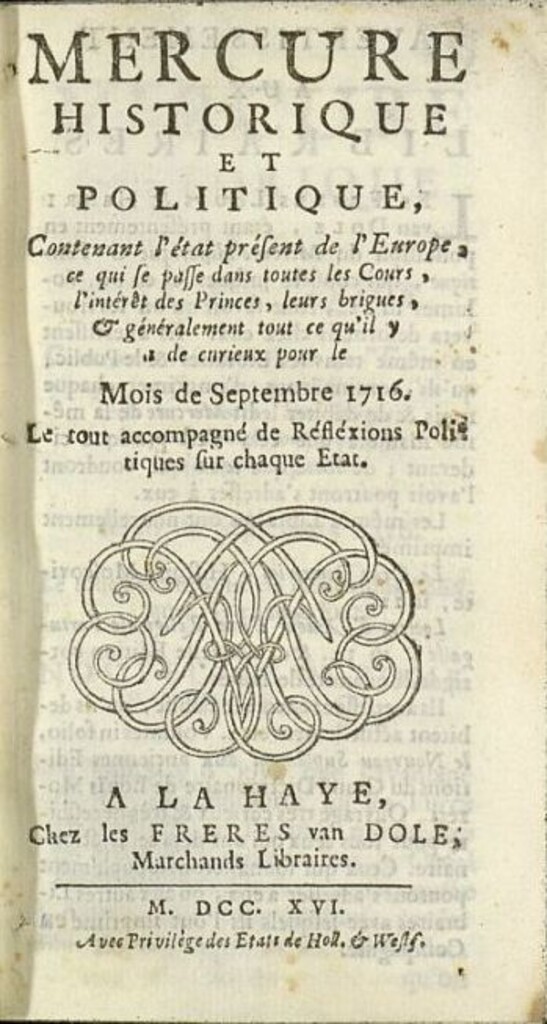 MERCURE
HISTORIQUE
ET
POLITIQUE,
Contenant l'état préſent de l'Europe,
ce qui ſe paſſe dans toutes les Cours,
l'intérêt des Princes, leurs brigues,
& généralement tout ce qu'il y
a de curieux pour le
Mois de Septembre 1716.
Le tout accompagné de Réfléxions Poli-
tiques ſur chaque Etat.
A LA HAYE,
Chez les FRERES van DOLE,
Marchands Libraires.
M. DCC. XVI.
Avec Privilège des Etats de Holl. & Weſtf.